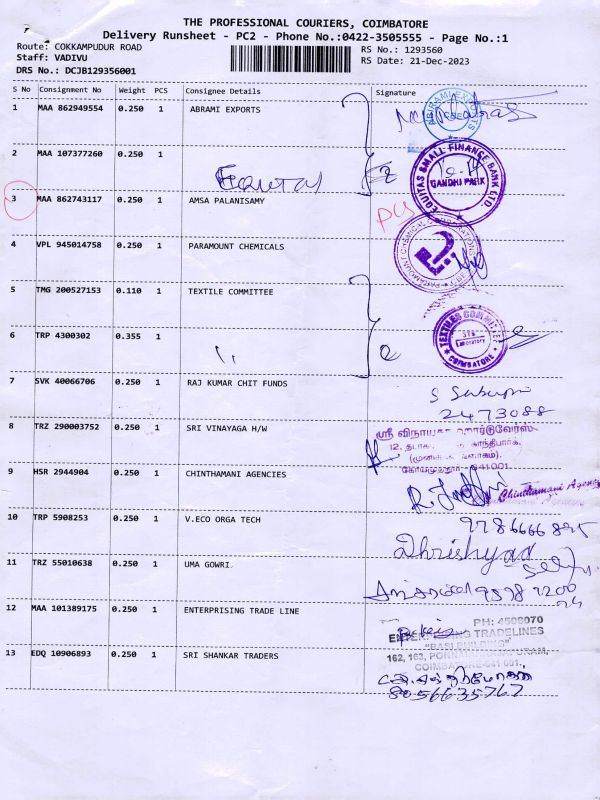 THE PROFESSIONAL COURIERS, COIMBATORE
Delivery Runsheet - PC2 - Phone No.:0422-3505555 - Page No.:1
Route: COKKAMPUDUR ROAD RS No.: 1293560
Staff: VADIVU RS Date: 21-Dec-2023
DRS No.: DCJB129356001
S No Consignment No Weight PCS Consignee Details Signature
1 MAA 862949554 0.250 1 ABRAMI EXPORTS
ABRAMI EXPORTS
2 MAA 107377260 0.250 1
EQUITAS SMALL FINANCE BANK LTD.
GANDHI PARK
3 MAA 862743117 0.250 1 AMSA PALANISAMY
4 VPL 945014758 0.250 1 PARAMOUNT CHEMICALS
5 TMG 200527153 0.110 1 TEXTILE COMMITTEE
6 TRP 4300302 0.355 1 ''
TEXTILES COMMITTEE
Laboratory
COIMBATORE
7 SVK 40066706 0.250 1 RAJ KUMAR CHIT FUNDS
2473088
8 TRZ 290003752 0.250 1 SRI VINAYAGA H/W
ஸ்ரீ
கோயமுத்தூர் 641001
9 HSR 2944904 0.250 1 CHINTHAMANI AGENCIES
Chinthamani Agency
10 TRP 5908253 0.250 1 V.ECO ORGA TECH
11 TRZ 55010638 0.250 1 UMA GOWRI
12 MAA 101389175 0.250 1 ENTERPRISING TRADE LINE
PH: 4508070
ENTERPRISING TRADELINES
COIMBATORE-641 001.
13 EDQ 10906893 0.250 1 SRI SHANKAR TRADERS
8056635767